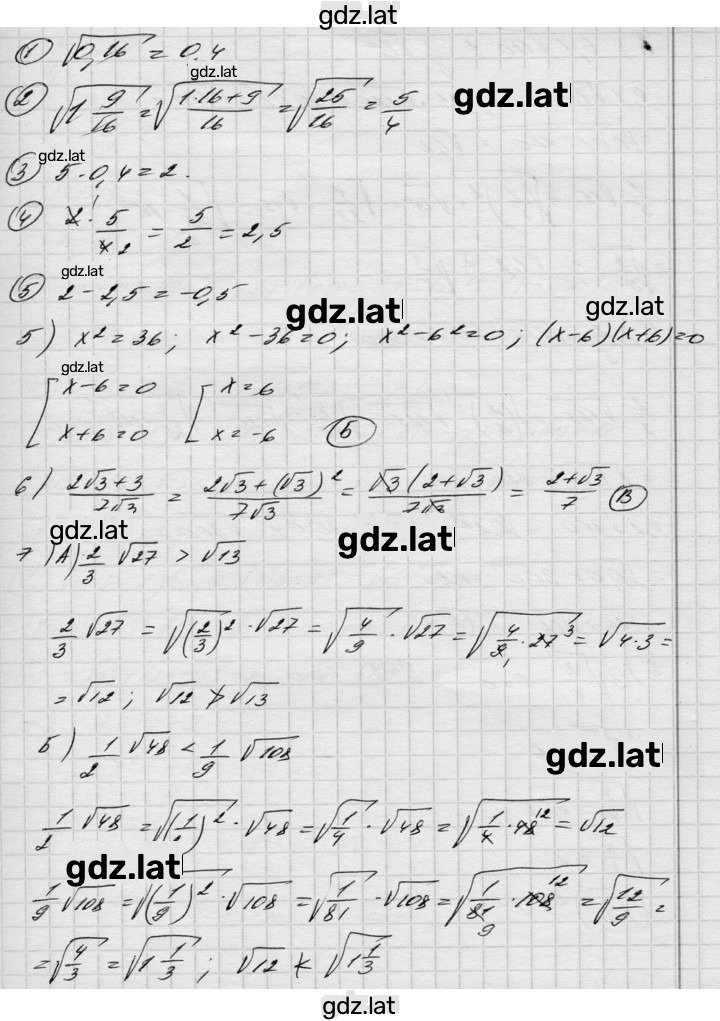 gdz.lat
① √0,16 = 0,4
gdz.lat
② √(1 9/16) = √((1·16+9)/16) = √(25/16) = 5/4
gdz.lat
gdz.lat
③ 5·0,4 = 2.
④ 2 · 5/4 2 = 5/2 = 2,5
gdz.lat
⑤ 2 - 2,5 = -0,5
gdz.lat
gdz.lat
5) x² = 36; x² - 36 = 0; x² - 6² = 0; (x-6)(x+6) = 0
gdz.lat
[ x - 6 = 0 [ x = 6
x + 6 = 0 x = -6 Б
6) (2√3+3)/(7√3) = (2√3+(√3)²)/(7√3) = (√3(2+√3))/(7√3) = (2+√3)/7 В
gdz.lat
gdz.lat
7) А) 2/3 √27 > √13
2/3 √27 = √((2/3)²) · √27 = √(4/9) · √27 = √(4/9 · 27 3) = √(4·3) =
= √12; √12 ≯ √13
Б) 1/2 √48 < 1/9 √108
gdz.lat
1/2 √48 = √((1/2)²) · √48 = √(1/4) · √48 = √(1/4 · 48 12) = √12
gdz.lat
1/9 √108 = √((1/9)²) · √108 = √(1/81) · √108 = √(1/81 9 · 108 12) = √(12/9) =
= √(4/3) = √(1 1/3); √12 ≮ √(1 1/3)
gdz.lat